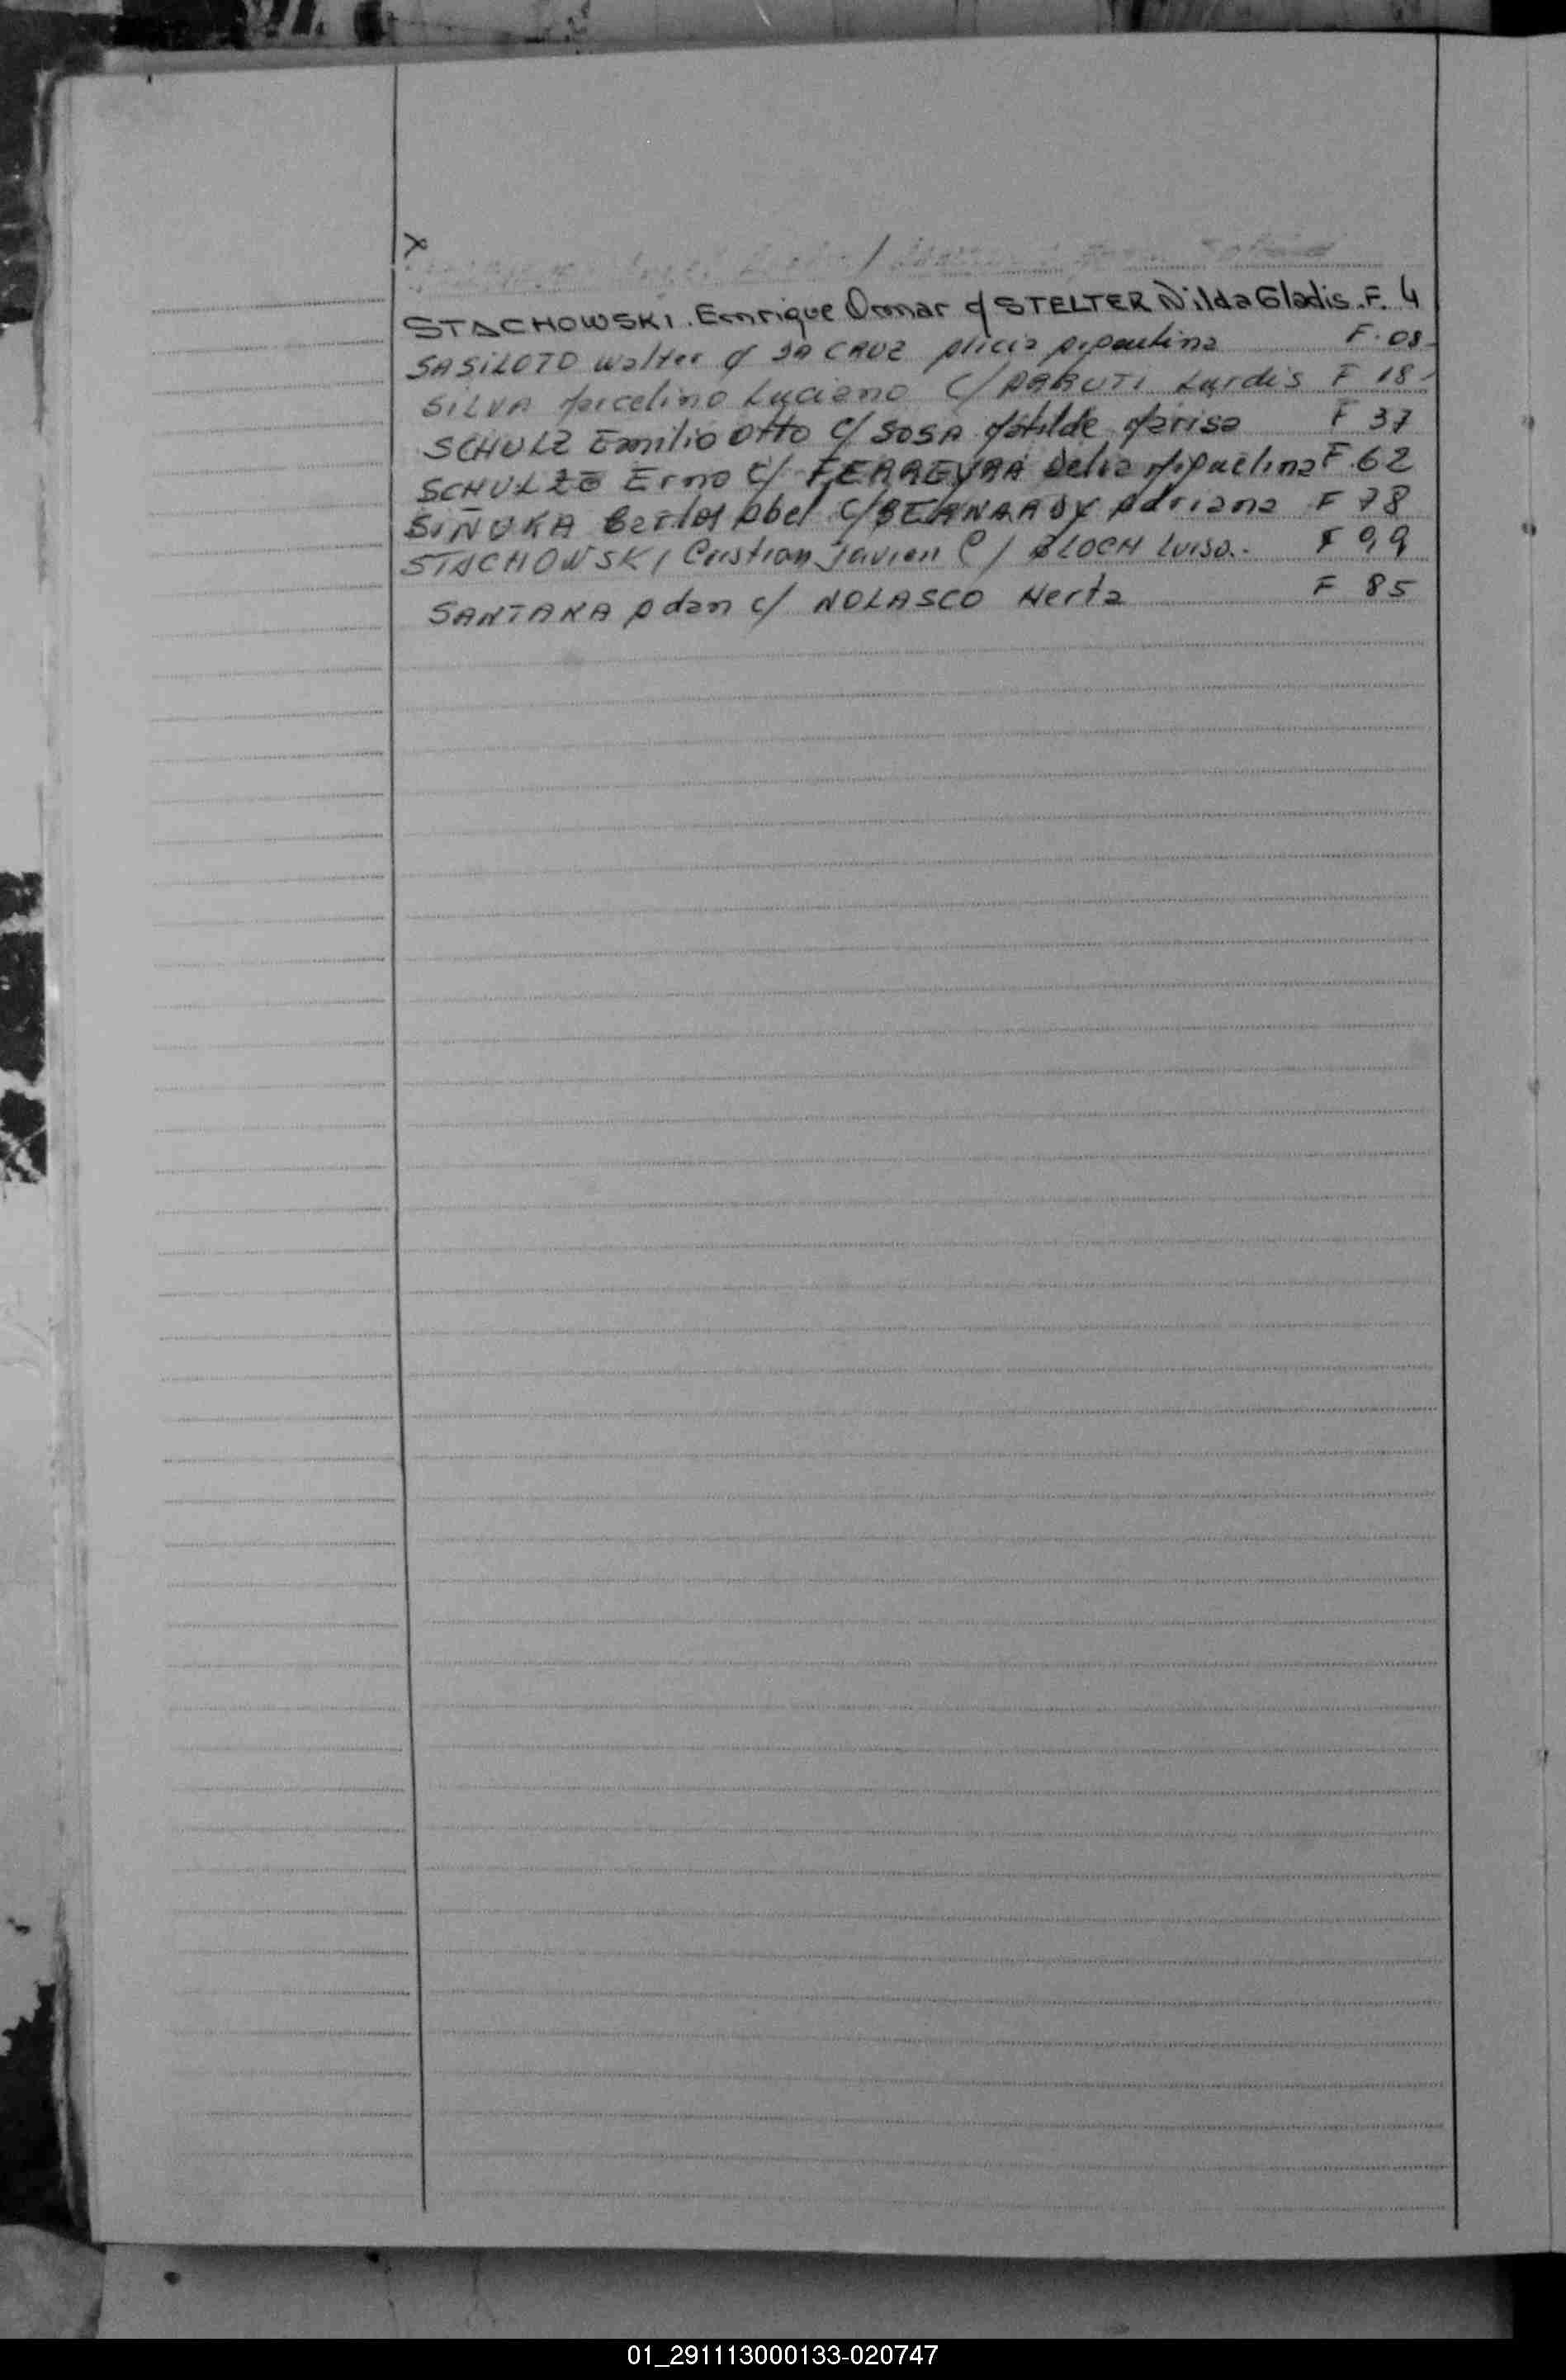 x
STACHOWSKI. Enrique Omar c/ STELTER Nilda Gladis. F. 4
SASILOTO Walter c/ DA CRUZ Alicia Argentina F. 08
SILVA Marcelino Luciano C/ Lurdis F 18
SCHULZ Emilio Otto C/ SOSA Matilde Marisa F 37
SCHULZE Erno C/ FERREYRA Delia Miguelina F. 62
SIÑUKA Carlos Abel C/ BERNARDY Adriana F 78
STACHOWSKI Cristian Javier C/ BLOCH Luisa. F 99
SANTANA Adan c/ NOLASCO Herta F 85
01_291113000133-020747